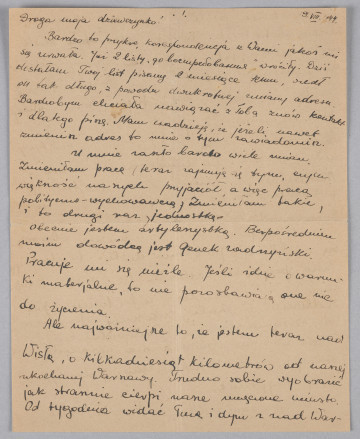 3.VIII.44
Droga moja dziewczynko!
Bardzo to przykre, korespondencja z Wami jakoś mi
się urwała. Już 2 listy "po bezimpiebowaniu" wróciły. Dziś
dostałam Twój list pisany 2 miesiące temu, szedł
on tak długo, z powodu dwukrotnej zmiany adresu.
Bardzobym chciała nawiązać z Tobą znów kontakt
i dlatego piszę. Mam nadzieję, że jeżeli nawet
zmienisz adres to mnie o tym zawiadomisz.
U mnie zaszło bardzo wiele zmian.
Zmieniłam pracę (teraz zajmuję się tym, czym
większość naszych przyjaciół a więc pracą
polityczno-wychowawczą). Zmieniłam także,
i to drugi raz "jednostkę".
Obecnie jestem artylerzystką. Bezpośrednim
moim dowódcą jest Genek
Pracuje mi się nieźle. Jeśli idzie o warun-
ki materjalne, to nie pozostawiają one nic
do życzenia.
Ale najważniejsze to, że jestem teraz nad
Wisłą, o kilkadziesiąt kilometrów od naszej
ukochanej Warszawy. Trudno sobie wyobrazić
jak strasznie cierpi nasze męczeńskie miasto.
Od tygodnia widać łunę i dym z nad War-